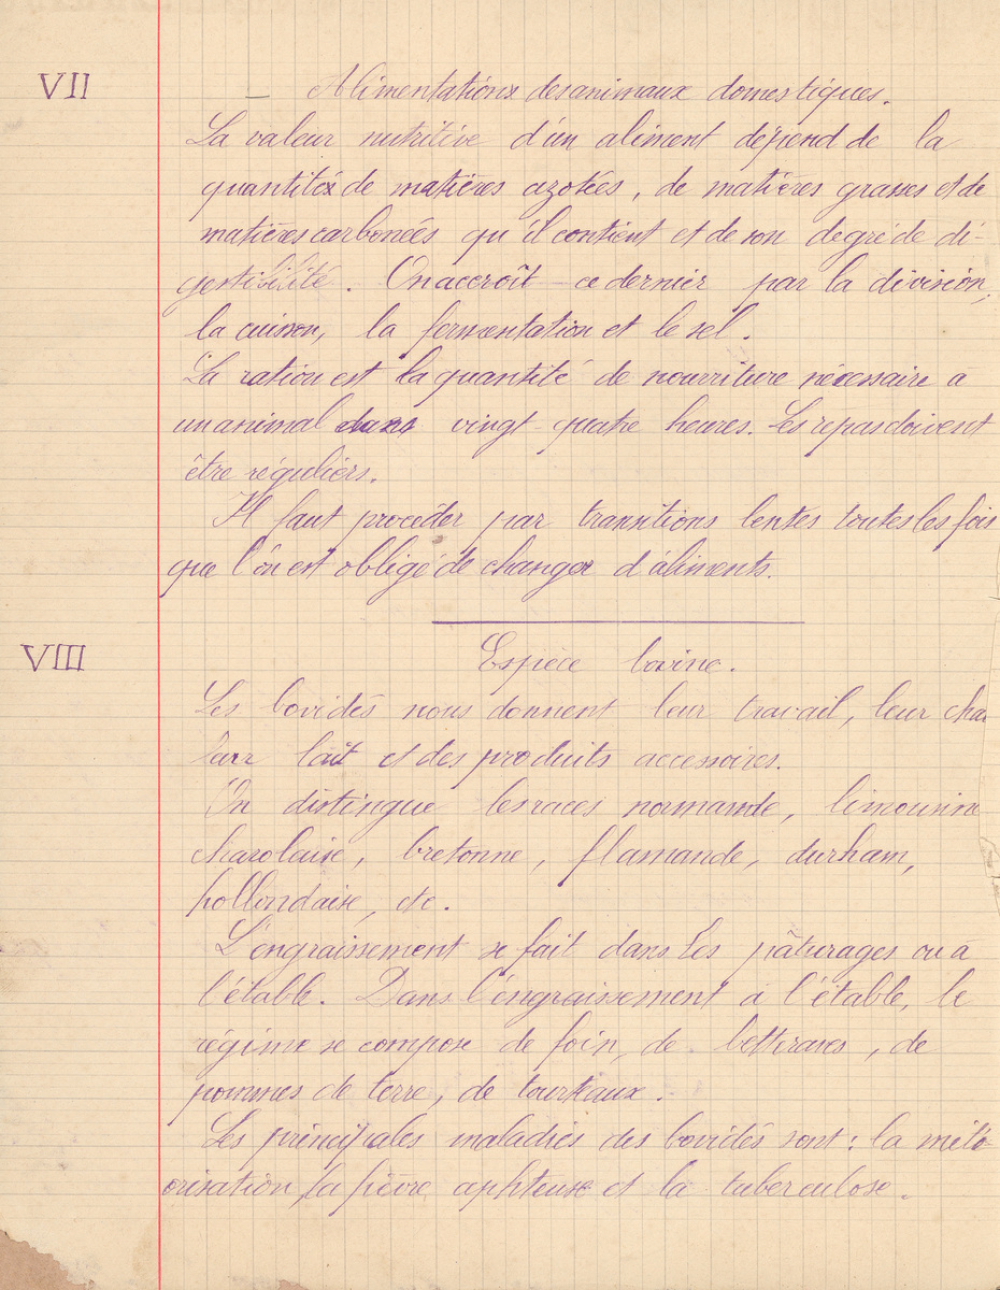 VII
— Alimentations des animaux domestiques.
La valeur nutritive d'un aliment dépend de la
quantité de matières azotées, de matières grasses et de
matières carbonées qu'il contient et de son degré de di-
gestibilité. On accroît ce dernier par la division,
la cuisson, la fermentation et le sel.
La ration est la quantité de nourriture nécessaire a
un animal dans vingt-quatre heures. Les repas doivent
être réguliers.
Il faut procéder par transitions lentes toutes les fois
que l'on est obligé de changer d'aliments.
VIII
Espèce bovine.
Les bovidés nous donnent leur travail, leur chai
leur lait et des produits accessoires.
On distingue les races normande, limousine
charolaise, bretonne, flamande, durham,
hollondaise, etc.
L'engraissement se fait dans les pâturages ou a
l'étable. Dans l'engraissement a l'étable, le
régime se compose de foin, de betteraves, de
pommes de terre, de tourteaux.
Les principales maladies des bovidés sont : la mété-
orisation, la fièvre aphteuse et la tuberculose.